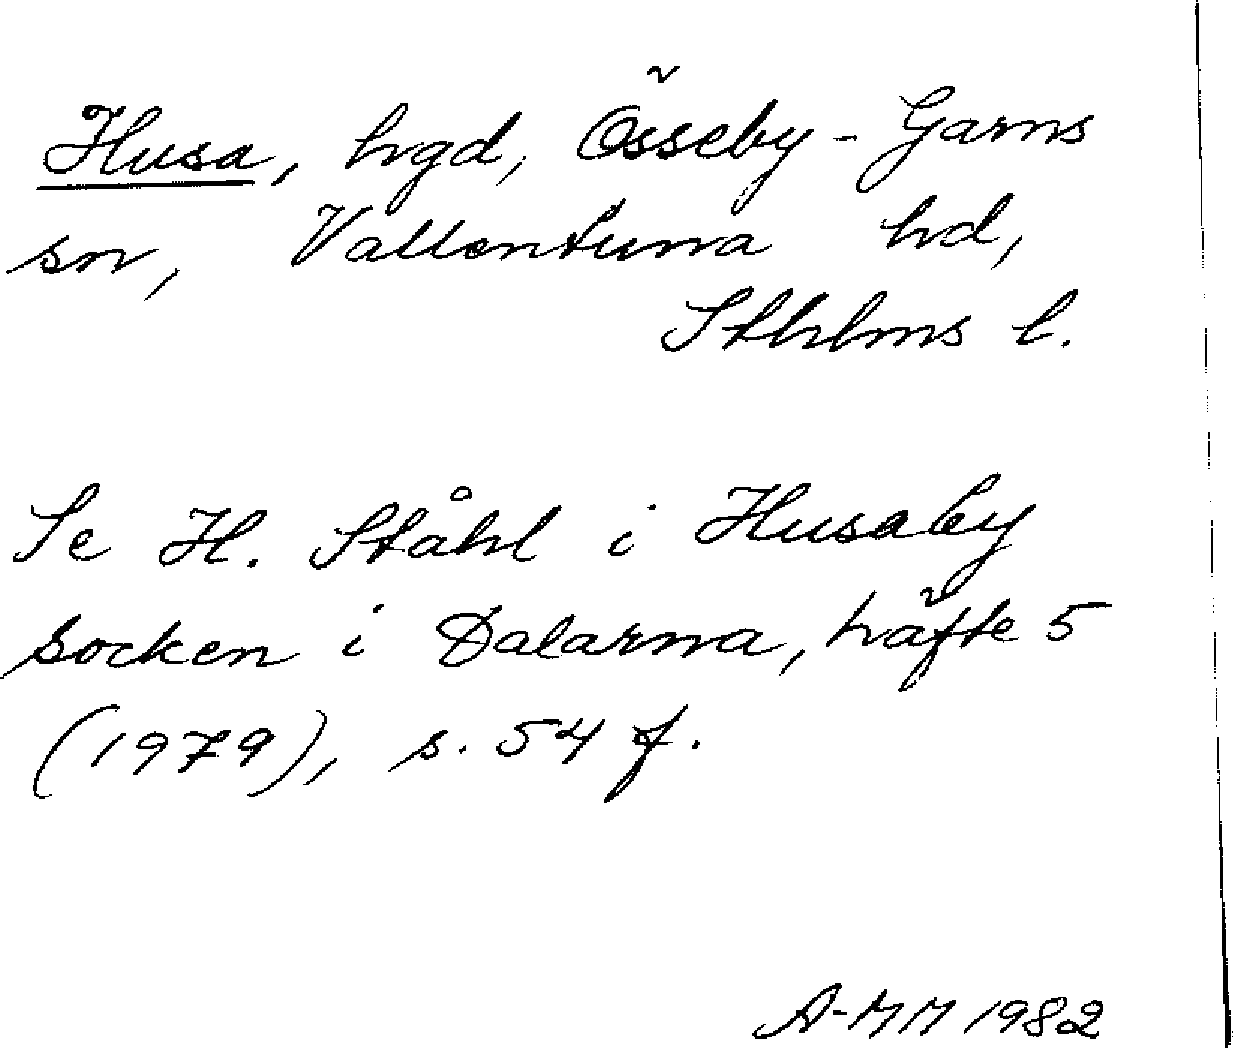 Husa, hgd, Össeby-Garns
sn, Vallentuna hd,
Sthlms l.
Se H. Ståhl i Husaby
socken i Dalarna, häfte 5
(1979), s. 54 f.
A-MM 1982